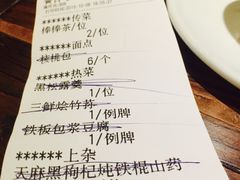 ******传菜
棒棒茶/位
2/位
******面点
核桃包
6/个
******热菜
黑松露羹
1/位
三鲜烩竹荪
1/例牌
铁板包浆豆腐
1/例牌
******上杂
天麻黑枸杞炖铁棍山药